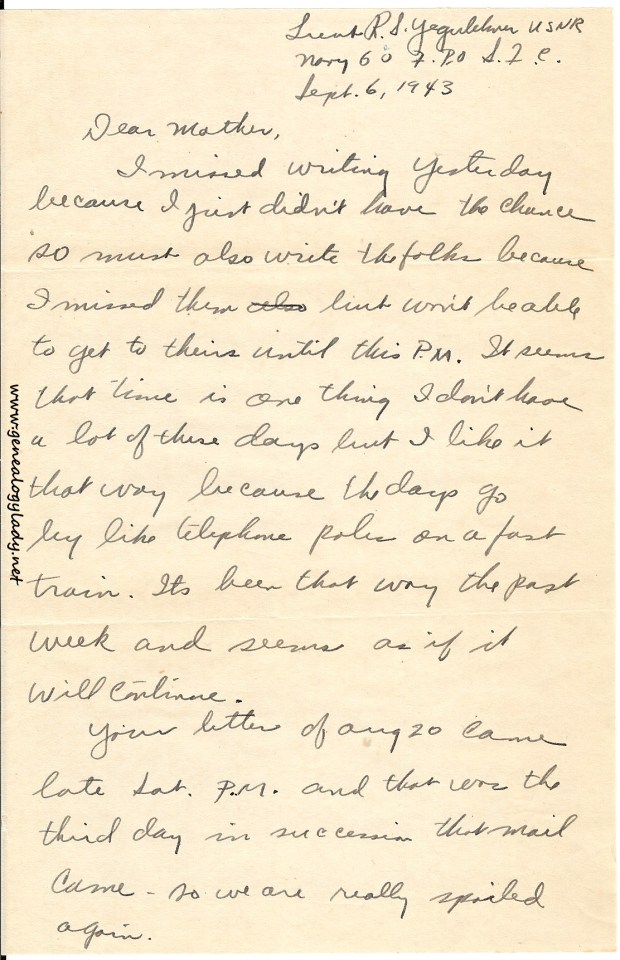 Lieut R. S. Yegerlehner USNR
Navy 60 F.P.O S.F.C.
Sept. 6, 1943
Dear Mother,
I missed writing yesterday
because I just didn't have the chance
so must also write the folks because
I missed them also but won't be able
to get to theirs until this P.M. It seems
that time is one thing I don't have
a lot of these days but I like it
that way because the days go
by like telephone poles on a fast
train. Its been that way the past
week and seems as if it
will continue.
Your letter of Aug 20 came
late Sat. P.M. and that was the
third day in succession that mail
came - so we are really spoiled
again.
www.genealogylady.net